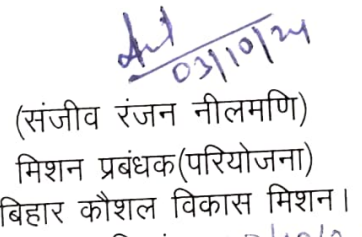 03/10/24
(संजीव रंजन नीलमणि)
मिशन प्रबंधक(परियोजना)
बिहार कौशल विकास मिशन।